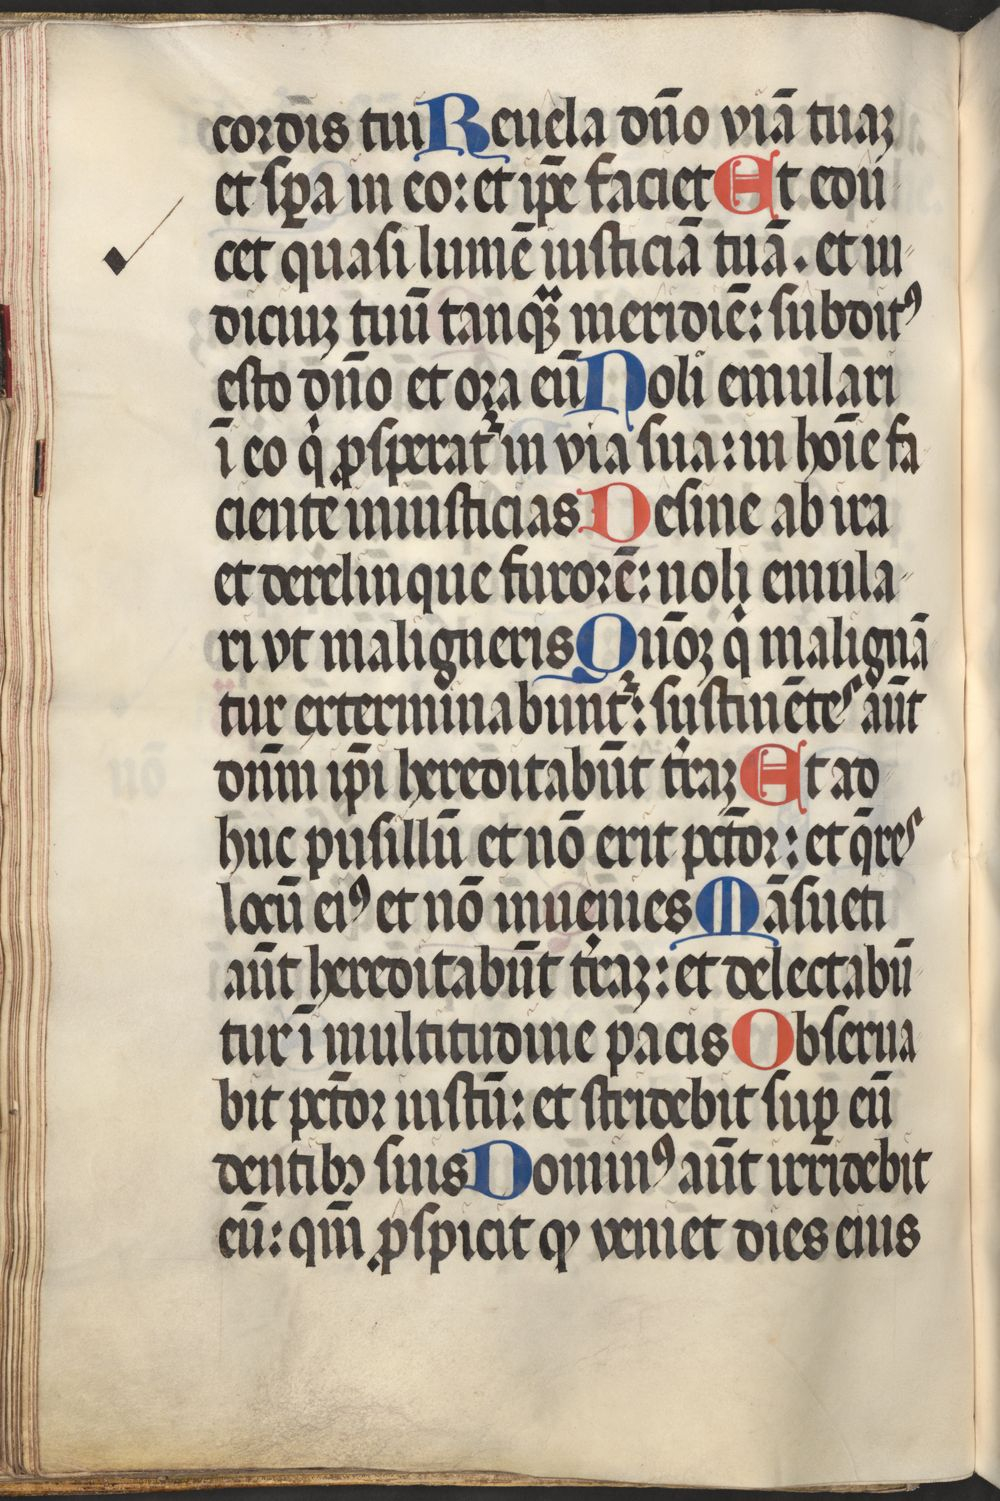 cordis tui Reuela dn̄o viā tuaꝫ
et sꝑa in eo: et ip̄e faciet Et edu
cet quasi lumē iusticiā tuā. et iu
diciuꝫ tuū tanqꝫ meridiē: subditꝰ
esto dn̄o et ora eū Noli emulari
ī eo qi ꝓsperat᷑ in via sua: in hoīe fa
ciente iniusticias Desine ab ira
et derelinque furorē: noli emula
ri vt maligneris Qūoꝫ qi malignā
tur exterminabunt᷑: sustinētes aūt
dn̄m ip̄i hereditabūt tr̄aꝫ Et ad
huc pusillū et nō erit pctōr: et q̄res
locū eiꝰ et nō inuenies Māsueti
aūt hereditabūt tr̄aꝫ: et delectabū
tur ī multitudine pacis Obserua
bit pctōr iustū: et stridebit suꝑ eū
dentibꝫ suis Dominꝰ aūt irridebit
eū: qm̄ ꝓspicit ꝙ veniet dies eius